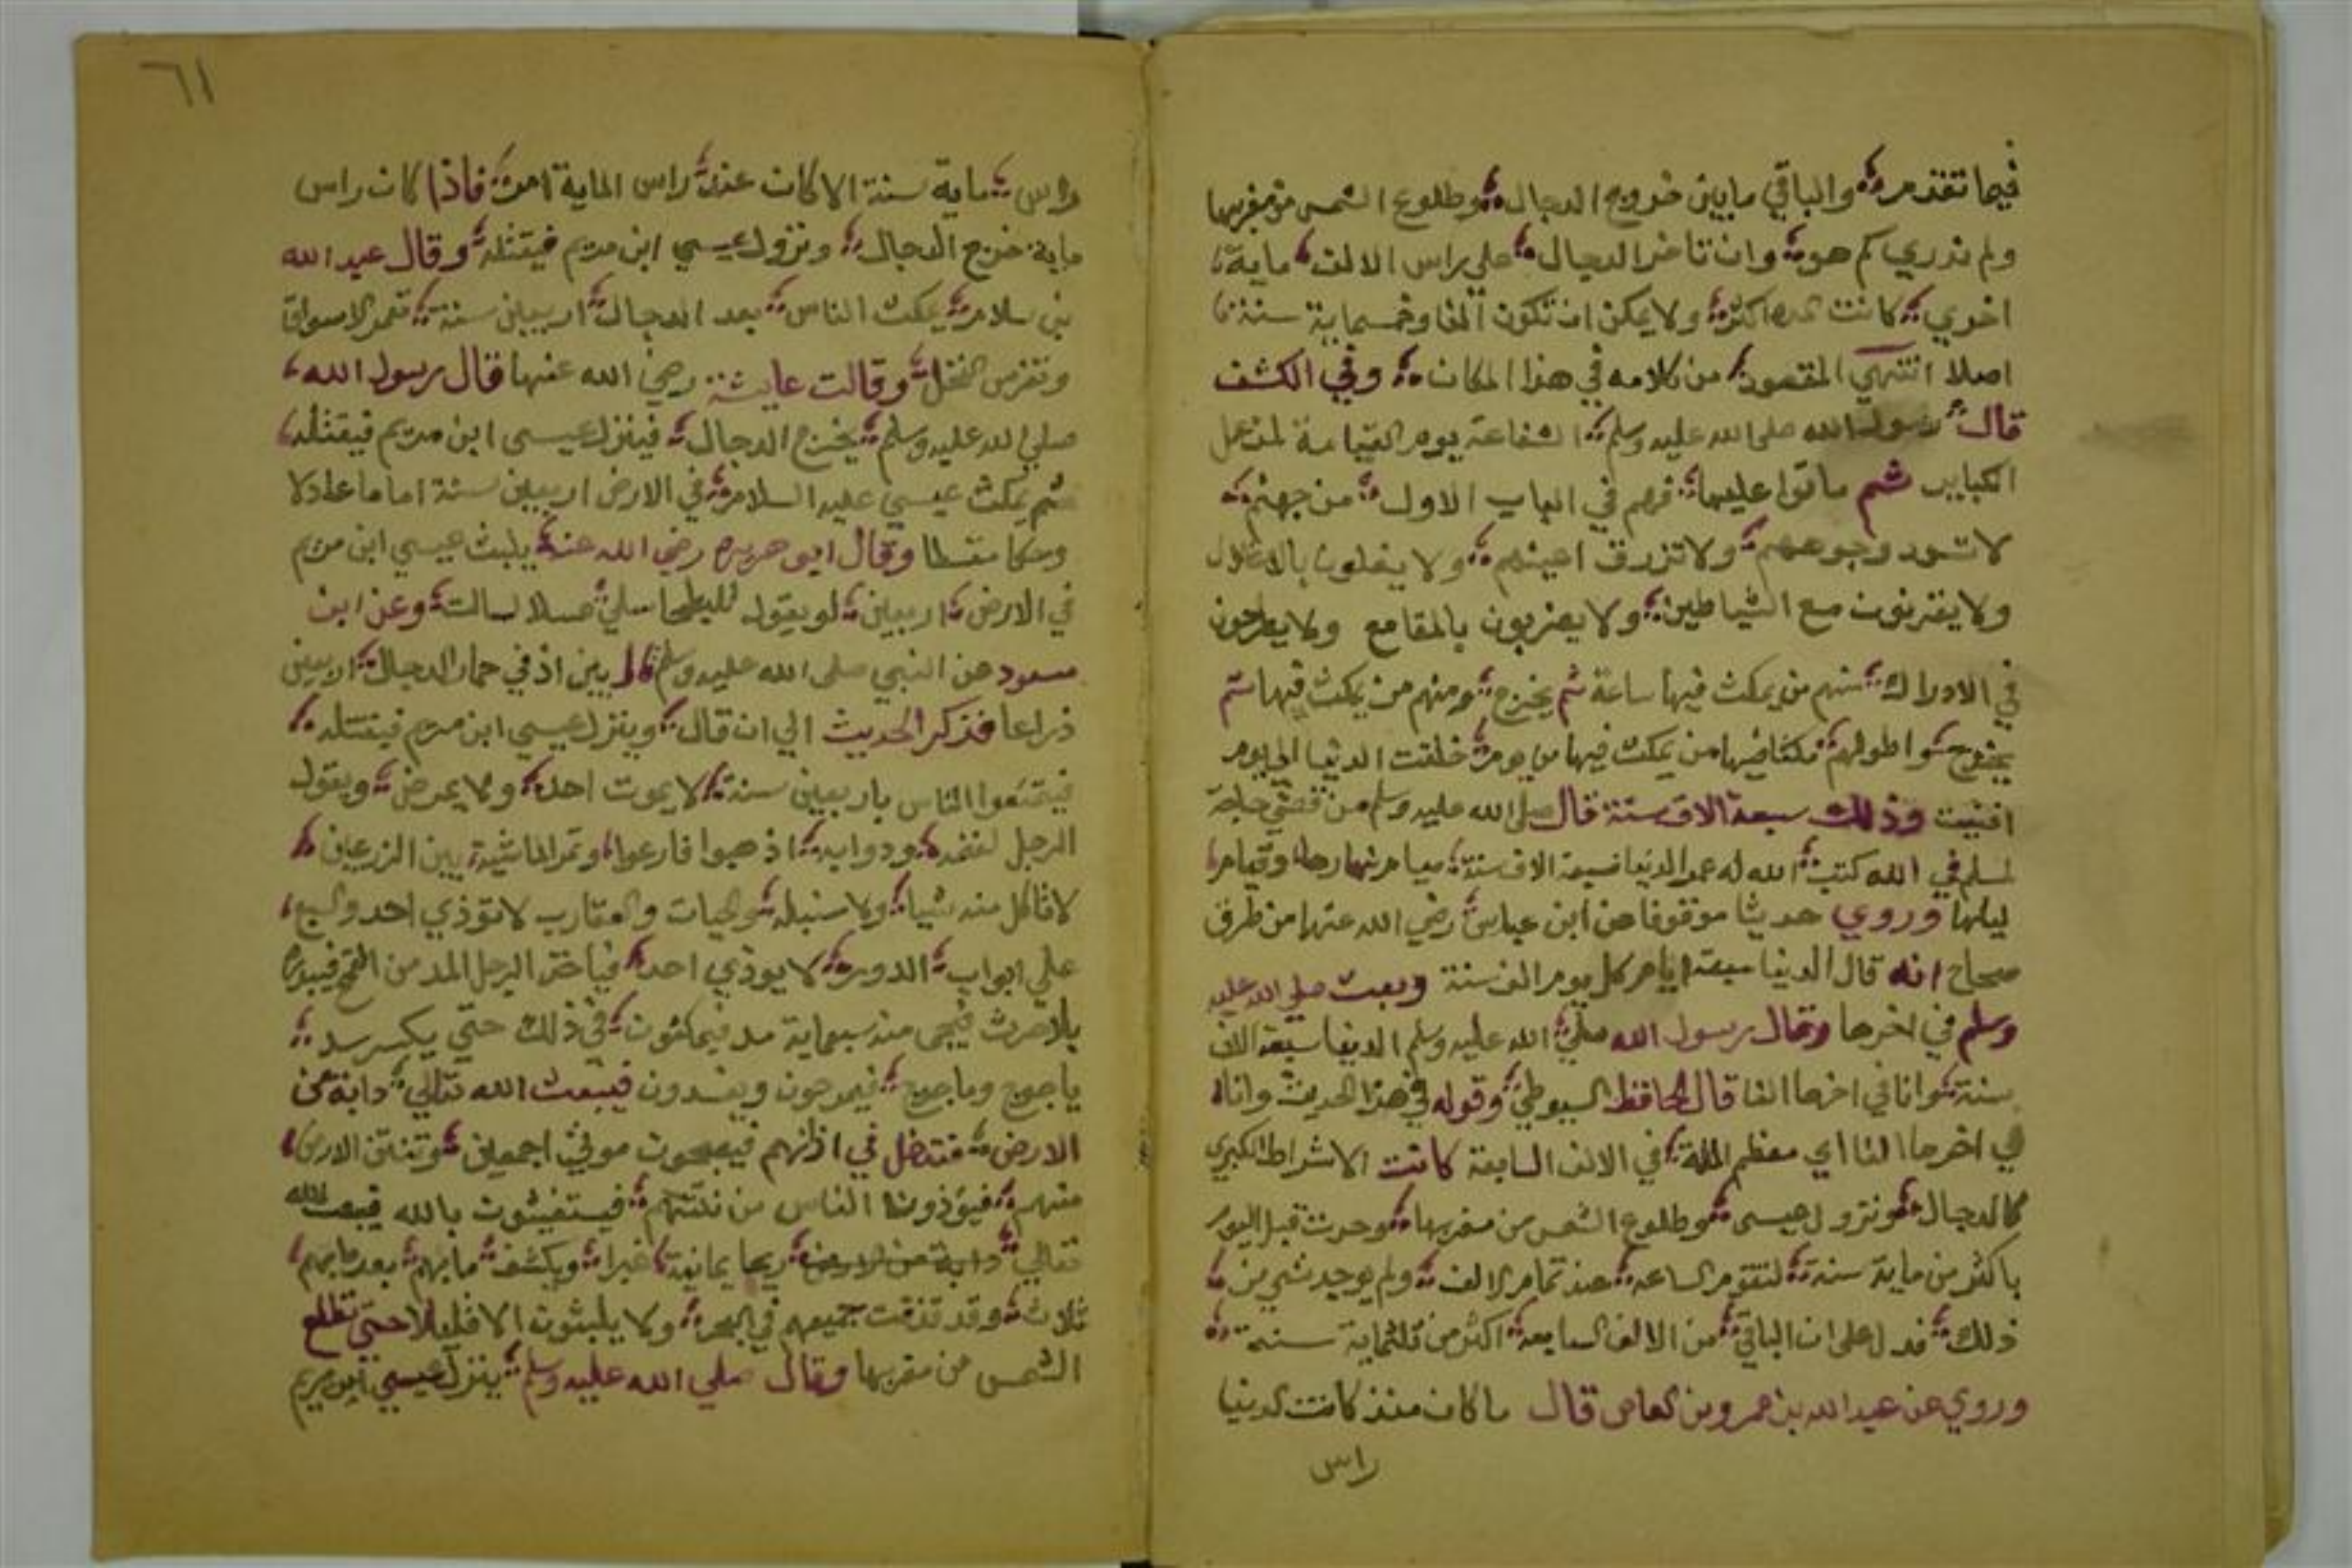 فيما تقدم والباقي ما بين خروج الدجال وطلوع الشمس من مغربها
ولم ندري كم هو وان تاخر الدجال علي راس الالف ماية
اخري كانت المدة اكثر ولا يمكن ان تكون الفا وخمسماية سنة
اصلا انتهي المقصود من كلامه في هذا المكان وفي الكشف
قال رسول الله صلي الله عليه وسلم الشفاعة يوم القيامة لمن عمل
الكباير ثم ماتوا عليها فهم في الباب الاول من جهنم
لا تسود وجوههم ولا تزرق اعينهم ولا يغلون بالاغلال
ولا يقرنون مع الشياطين ولا يضربون بالمقامع ولا يطرحون
في الادراك منهم من يمكث فيها ساعة ثم يخرج ومنهم من يمكث فيها ثم
يخرج واطولهم مكثا فيها من يمكث فيها من يوم خلقت الدنيا الي يوم
افنيت وذلك سبعة الاف سنة قال صلي الله عليه وسلم من قضي حاجة
لمسلم في الله كتب الله له عمر الدنيا سبعة الاف سنة صيام نهارها وقيام
ليلها وروي حديثا موقوفا عن ابن عباس رضي الله عنهما من طرق
صحاح انه قال الدنيا سبعة ايام كل يوم الف سنة وبعث صلي الله عليه
وسلم في اخرها وقال رسول الله صلي الله عليه وسلم الدنيا سبعة الاف
سنة وانا في اخرها الفا قال الحافظ السيوطي وقوله في هذا الحديث وانا
في اخرها الفا اي معظم الملة في الالف السابعة كانت الاشراط الكبري
كالدجال ونزول عيسي وطلوع الشمس من مغربها وحدث قبل اليوم
باكثر من ماية سنة لتقوم الساعة عند تمام الالف ولم يوجد شي من
ذلك فدل علي ان الباقي من الالف السابعة اكثر من ثلثماية سنة
وروي عن عبد الله بن عمرو بن العاص قال ما كان منذ كانت الدنيا
راس
٦١
راس ماية سنة الا كان عند راس الماية امر فاذا كان راس
ماية خرج الدجال ونزول عيسي ابن مريم فيقتله وقال عبد الله
بن سلام يمكث الناس بعد الدجال اربعين سنة تعمر الاسواق
وتغرس النخل وقالت عايشة رضي الله عنها قال رسول الله
صلي الله عليه وسلم يخرج الدجال فينزل عيسي ابن مريم فيقتله
ثم يمكث عيسي عليه السلام في الارض اربعين سنة اماما عادلا
وحكما مقسطا وقال ابو هريره رضي الله عنه يلبث عيسي ابن مريم
في الارض اربعين لو يقول للبطحا سلي عسلا لسالت وعن ابن
مسعود عن النبي صلي الله عليه وسلم قال بين اذني حمار الدجال اربعين
ذراعا فذكر الحديث الي ان قال وينزل عيسي ابن مريم فيقتله
فيتمتعوا الناس باربعين سنة لا يموت احد ولا يمرض ويقول
الرجل لغنمه ودوابه اذهبوا فارعوا وتمر الماشية بين الزرعين
لا تاكل منه شيا ولا سنبله والحيات والعقارب لا توذي احد والسبع
علي ابواب الدور لا يوذي احد فياخذ الرجل المد من القمح فيبذره
بلا حرث فيجي منه سبعماية مد فيمكثون في ذلك حتي يكسر سد
ياجوج وماجوج فيمرحون ويفسدون فيبعث الله تعالي دابة من
الارض فتدخل في اذانهم فيصبحون موتي اجمعين وتنتن الارض
منهم فيوذون الناس من نتنهم فيستغيثون بالله فيبعث الله
تعالي دابة من الارض ريحا يمانية غبرا ويكشف ما بهم بعد
ثلاث وقد قذفت جميعهم في البحر ولا يلبثون الا قليلا حتي تطلع
الشمس من مغربها وقال صلي الله عليه وسلم ينزل عيسي ابن مريم